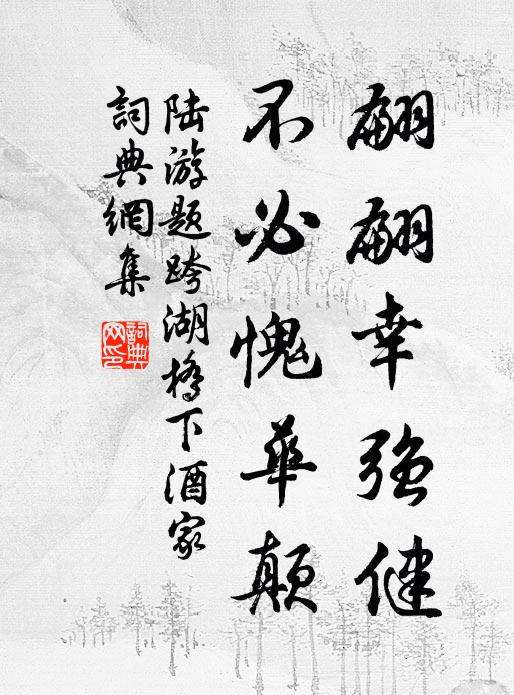 翩翩幸强健
不必愧華顛
陆游题跨湖橋下酒家
詞典網集
詞典
网印